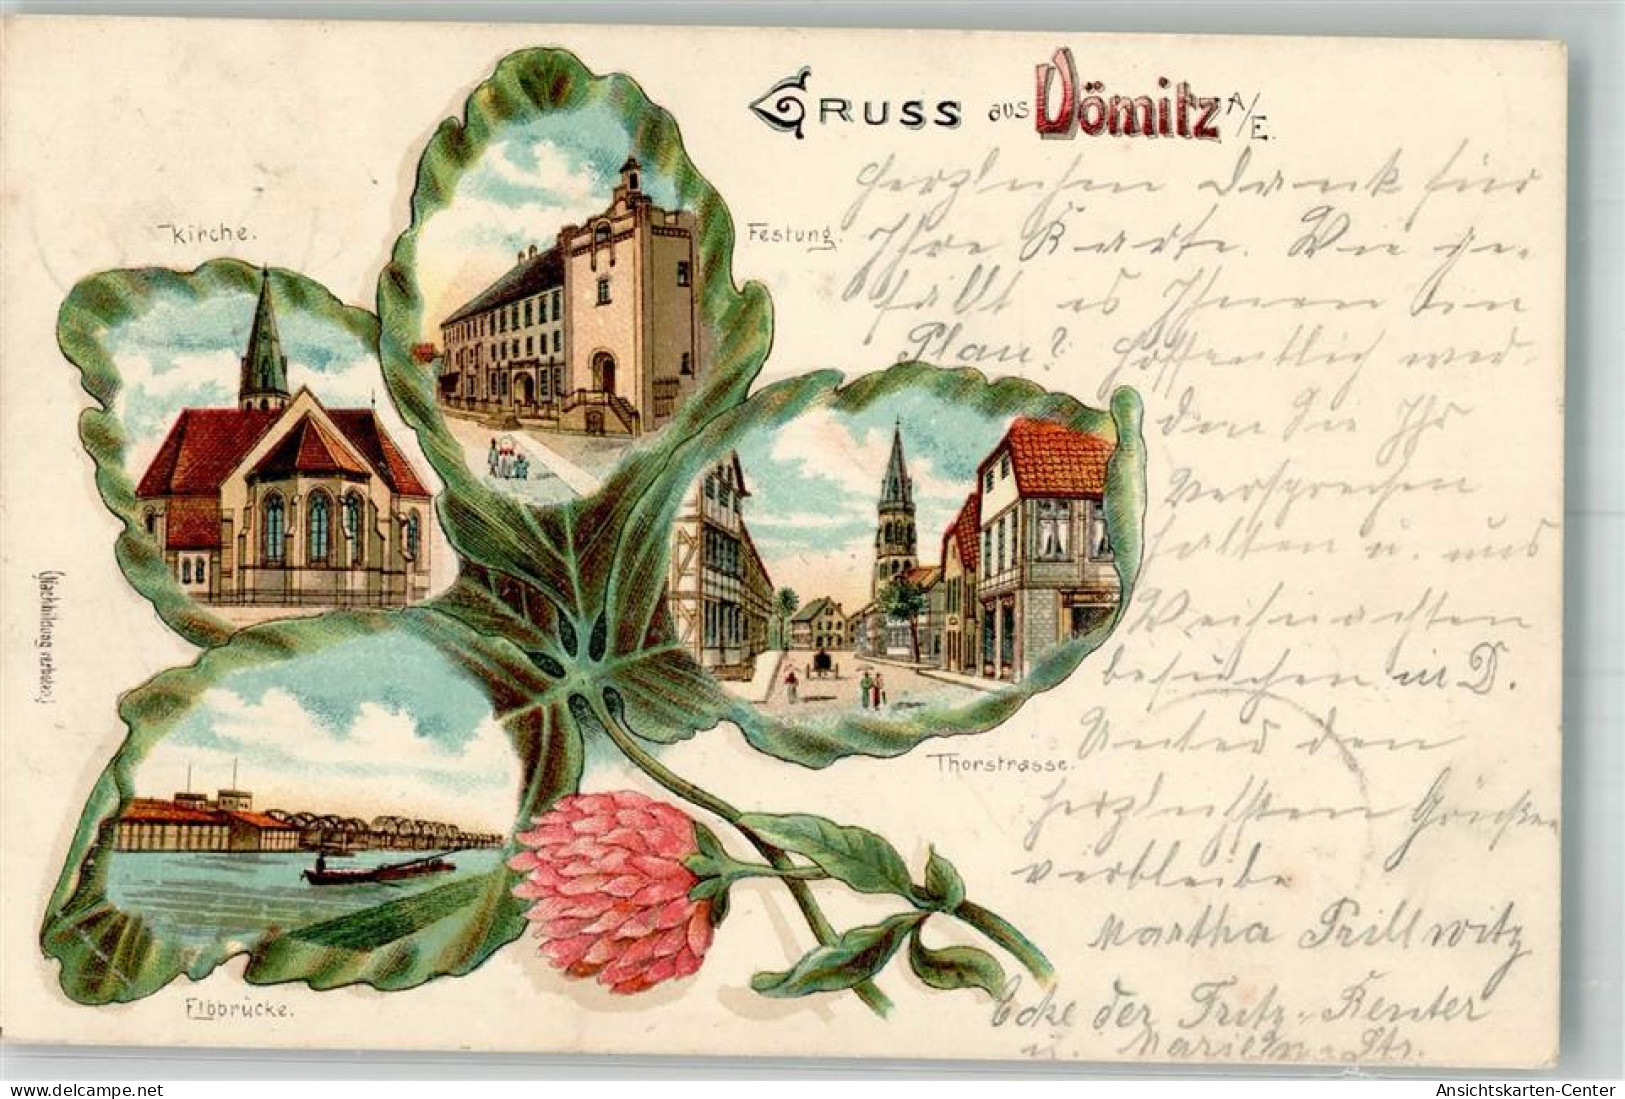 Gruss aus Dömitz A/E.
Kirche.
Festung.
Thorstrasse.
Elbbrücke.
(Nachbildung verboten.)
Herzlichen Dank für
Ihre Karte. Wie ge-
fällt es Ihnen in
Plau? Hoffentlich wer-
den Sie Ihr
Versprechen
halten u. uns
Weihnachten
besuchen in D.
Unter den
herzlichsten Grüßen
verbleibe
Martha Prillwitz
Ecke der Fritz-Reuter
u. Marien-Str.
Ansichtskarten-Center